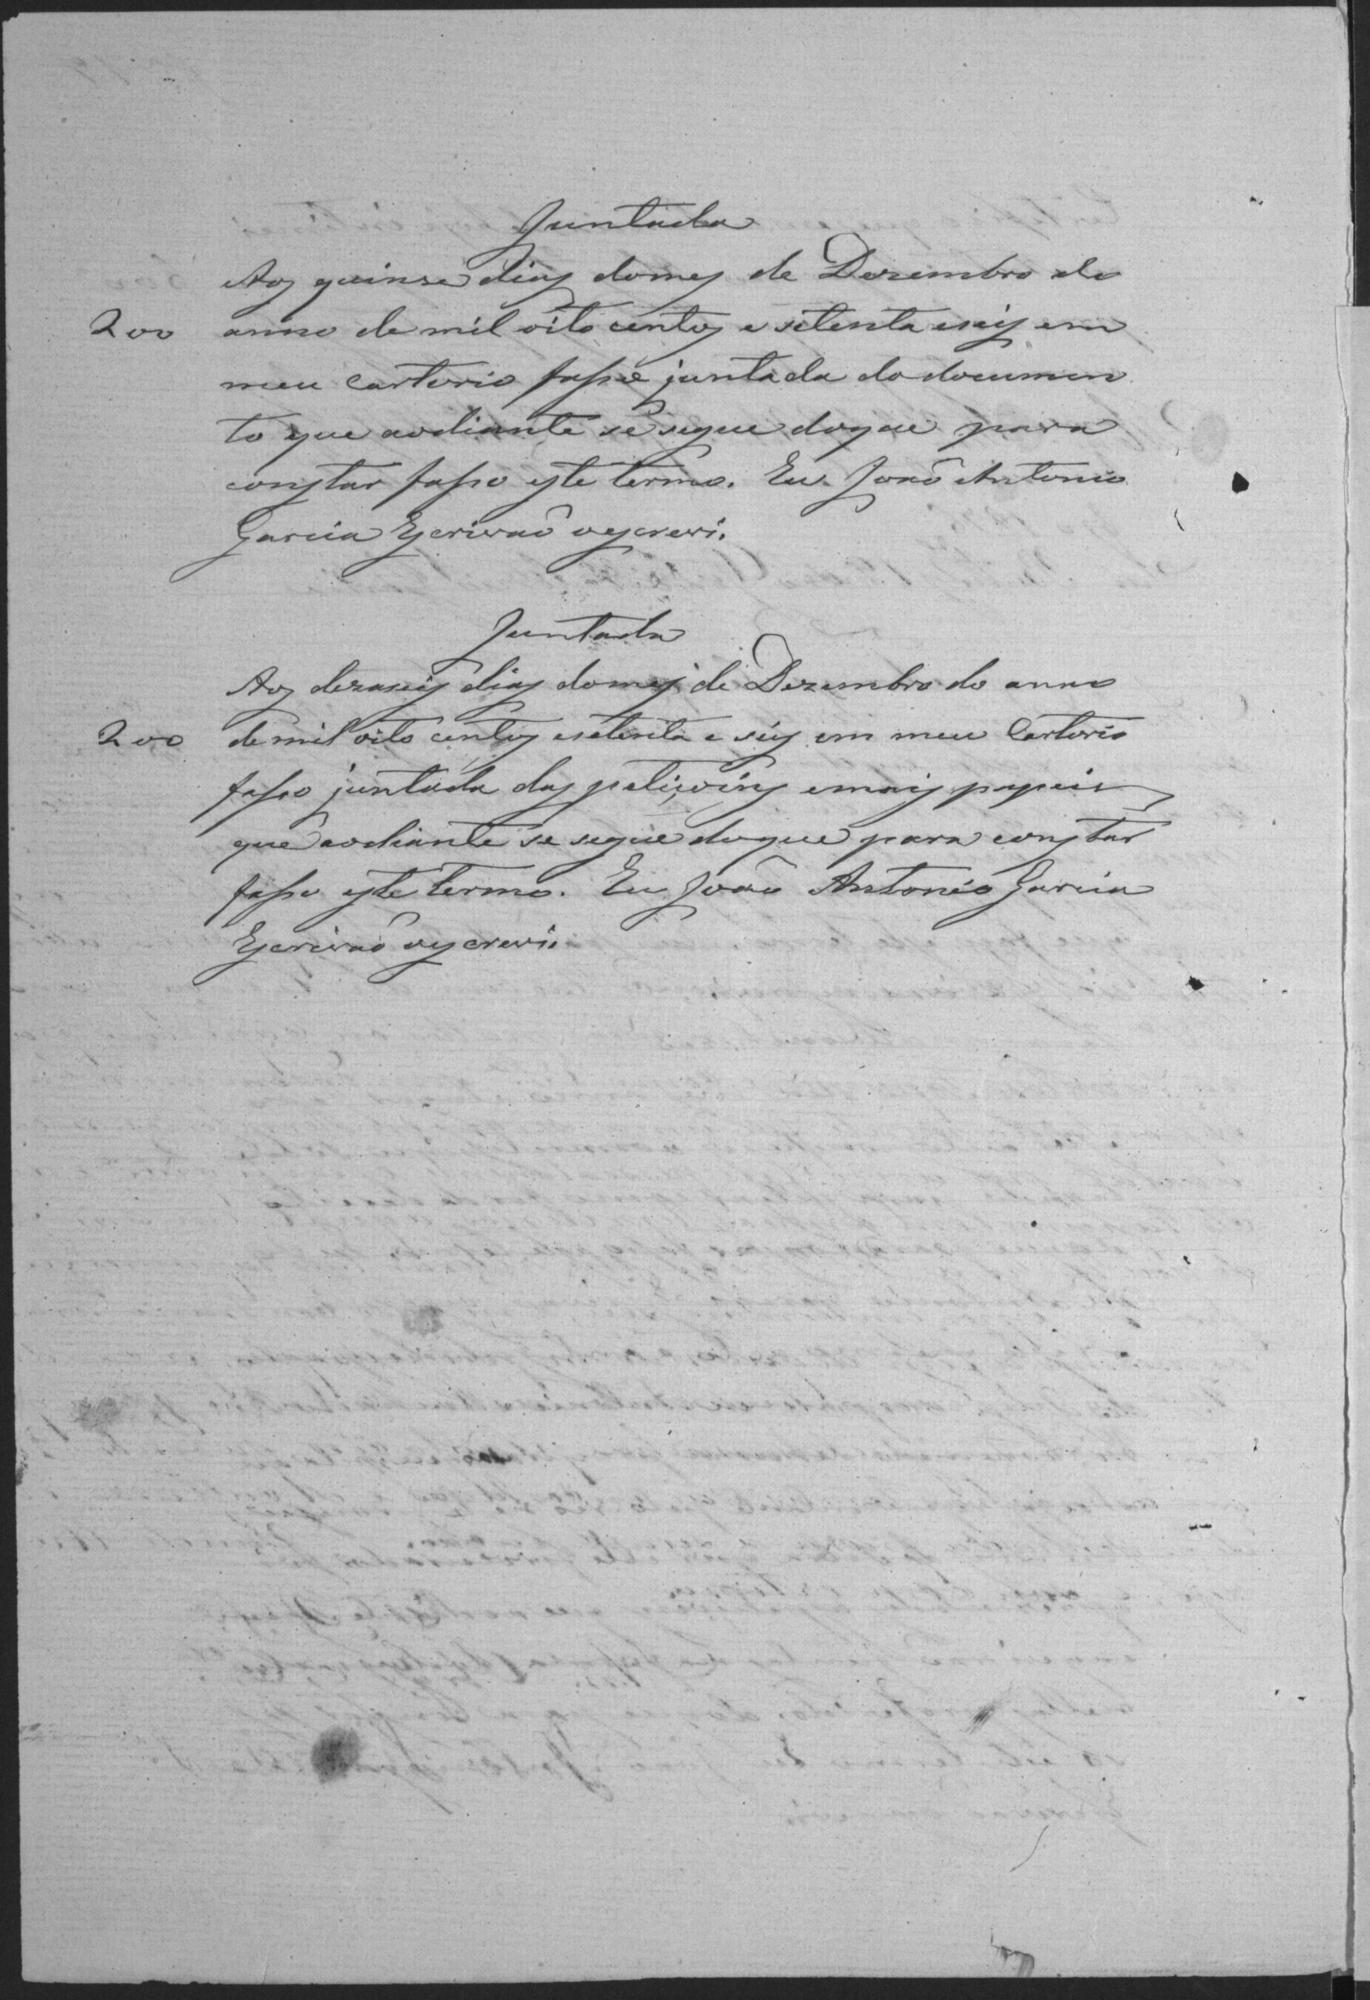 Juntada
Aos quinse dias do mes de Dezembro do
200 anno de mil oito centos e setenta e seis em
meu cartorio fasso juntada do documen
to que aodiante se segue do que para
constar fasso este termo. Eu João Antonio
Garcia Escrivaõ o escrevi.
Juntada
Aos dezaseis dias do mes de Dezembro do anno
200 de mil oito centos e setenta e seis em meu Cartorio
fasso juntada das petiçoins e mais papeis
que aodiante se segue do que para constar
fasso este termo. Eu João Antonio Garcia
Escrivaõ o escrevi.